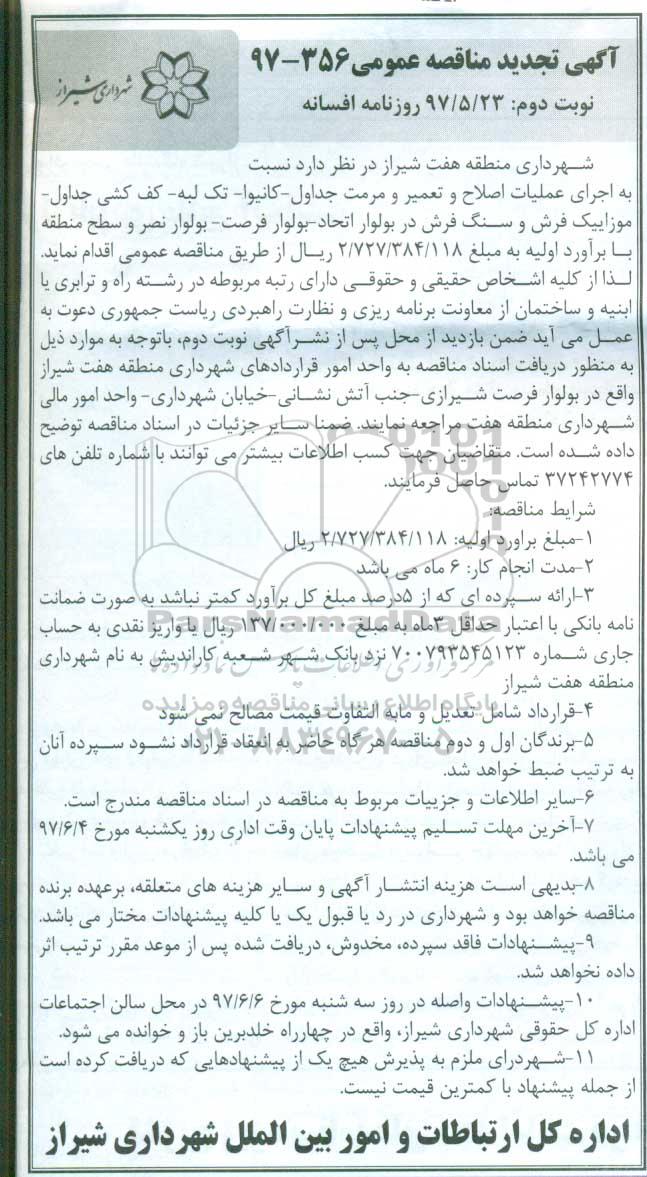 آگهی تجدید مناقصه عمومی ۳۵۶-۹۷
نوبت دوم: ۹۷/۵/۲۳ روزنامه افسانه
شهرداری شیراز
شهرداری منطقه هفت شیراز در نظر دارد نسبت
به اجرای عملیات اصلاح و تعمیر و مرمت جداول-کانیوا- تک لبه- کف کشی جداول-
موزاییک فرش و سنگ فرش در بولوار اتحاد-بولوار فرصت- بولوار نصر و سطح منطقه
با برآورد اولیه به مبلغ ۲/۷۲۷/۳۸۴/۱۱۸ ریال از طریق مناقصه عمومی اقدام نماید.
لذا از کلیه اشخاص حقیقی و حقوقی دارای رتبه مربوطه در رشته راه و ترابری یا
ابنیه و ساختمان از معاونت برنامه ریزی و نظارت راهبردی ریاست جمهوری دعوت به
عمل می آید ضمن بازدید از محل پس از نشرآگهی نوبت دوم، باتوجه به موارد ذیل
به منظور دریافت اسناد مناقصه به واحد امور قراردادهای شهرداری منطقه هفت شیراز
واقع در بولوار فرصت شیرازی-جنب آتش نشانی-خیابان شهرداری- واحد امور مالی
شهرداری منطقه هفت مراجعه نمایند. ضمنا سایر جزئیات در اسناد مناقصه توضیح
داده شده است. متقاضیان جهت کسب اطلاعات بیشتر می توانند با شماره تلفن های
۳۷۲۴۲۷۷۴ تماس حاصل فرمایند.
شرایط مناقصه:
۱-مبلغ براورد اولیه: ۲/۷۲۷/۳۸۴/۱۱۸ ریال
۲-مدت انجام کار: ۶ ماه می باشد
۳-ارائه سپرده ای که از ۵درصد مبلغ کل برآورد کمتر نباشد به صورت ضمانت
نامه بانکی با اعتبار حداقل ۳ماه به مبلغ ۱۳۷/۰۰۰/۰۰۰ ریال یا واریز نقدی به حساب
جاری شماره ۷۰۰۷۹۳۵۴۵۱۲۳ نزد بانک شهر شعبه کاراندیش به نام شهرداری
منطقه هفت شیراز
۴-قرارداد شامل تعدیل و مابه التفاوت قیمت مصالح نمی شود
۵-برندگان اول و دوم مناقصه هر گاه حاضر به انعقاد قرارداد نشود سپرده آنان
به ترتیب ضبط خواهد شد.
۶-سایر اطلاعات و جزییات مربوط به مناقصه در اسناد مناقصه مندرج است.
۷-آخرین مهلت تسلیم پیشنهادات پایان وقت اداری روز یکشنبه مورخ ۹۷/۶/۴
می باشد.
۸-بدیهی است هزینه انتشار آگهی و سایر هزینه های متعلقه، برعهده برنده
مناقصه خواهد بود و شهرداری در رد یا قبول یک یا کلیه پیشنهادات مختار می باشد.
۹-پیشنهادات فاقد سپرده، مخدوش، دریافت شده پس از موعد مقرر ترتیب اثر
داده نخواهد شد.
۱۰-پیشنهادات واصله در روز سه شنبه مورخ ۹۷/۶/۶ در محل سالن اجتماعات
اداره کل حقوقی شهرداری شیراز، واقع در چهارراه خلدبرین باز و خوانده می شود.
۱۱-شهردرای ملزم به پذیرش هیچ یک از پیشنهادهایی که دریافت کرده است
از جمله پیشنهاد با کمترین قیمت نیست.
اداره کل ارتباطات و امور بین الملل شهرداری شیراز
ParsNamadData
مرکز فرآوری اطلاعات پارس نماد داده ها
پایگاه اطلاع رسانی مناقصه و مزایده
۰۲۱-۸۸۳۴۹۶۷۰-۵